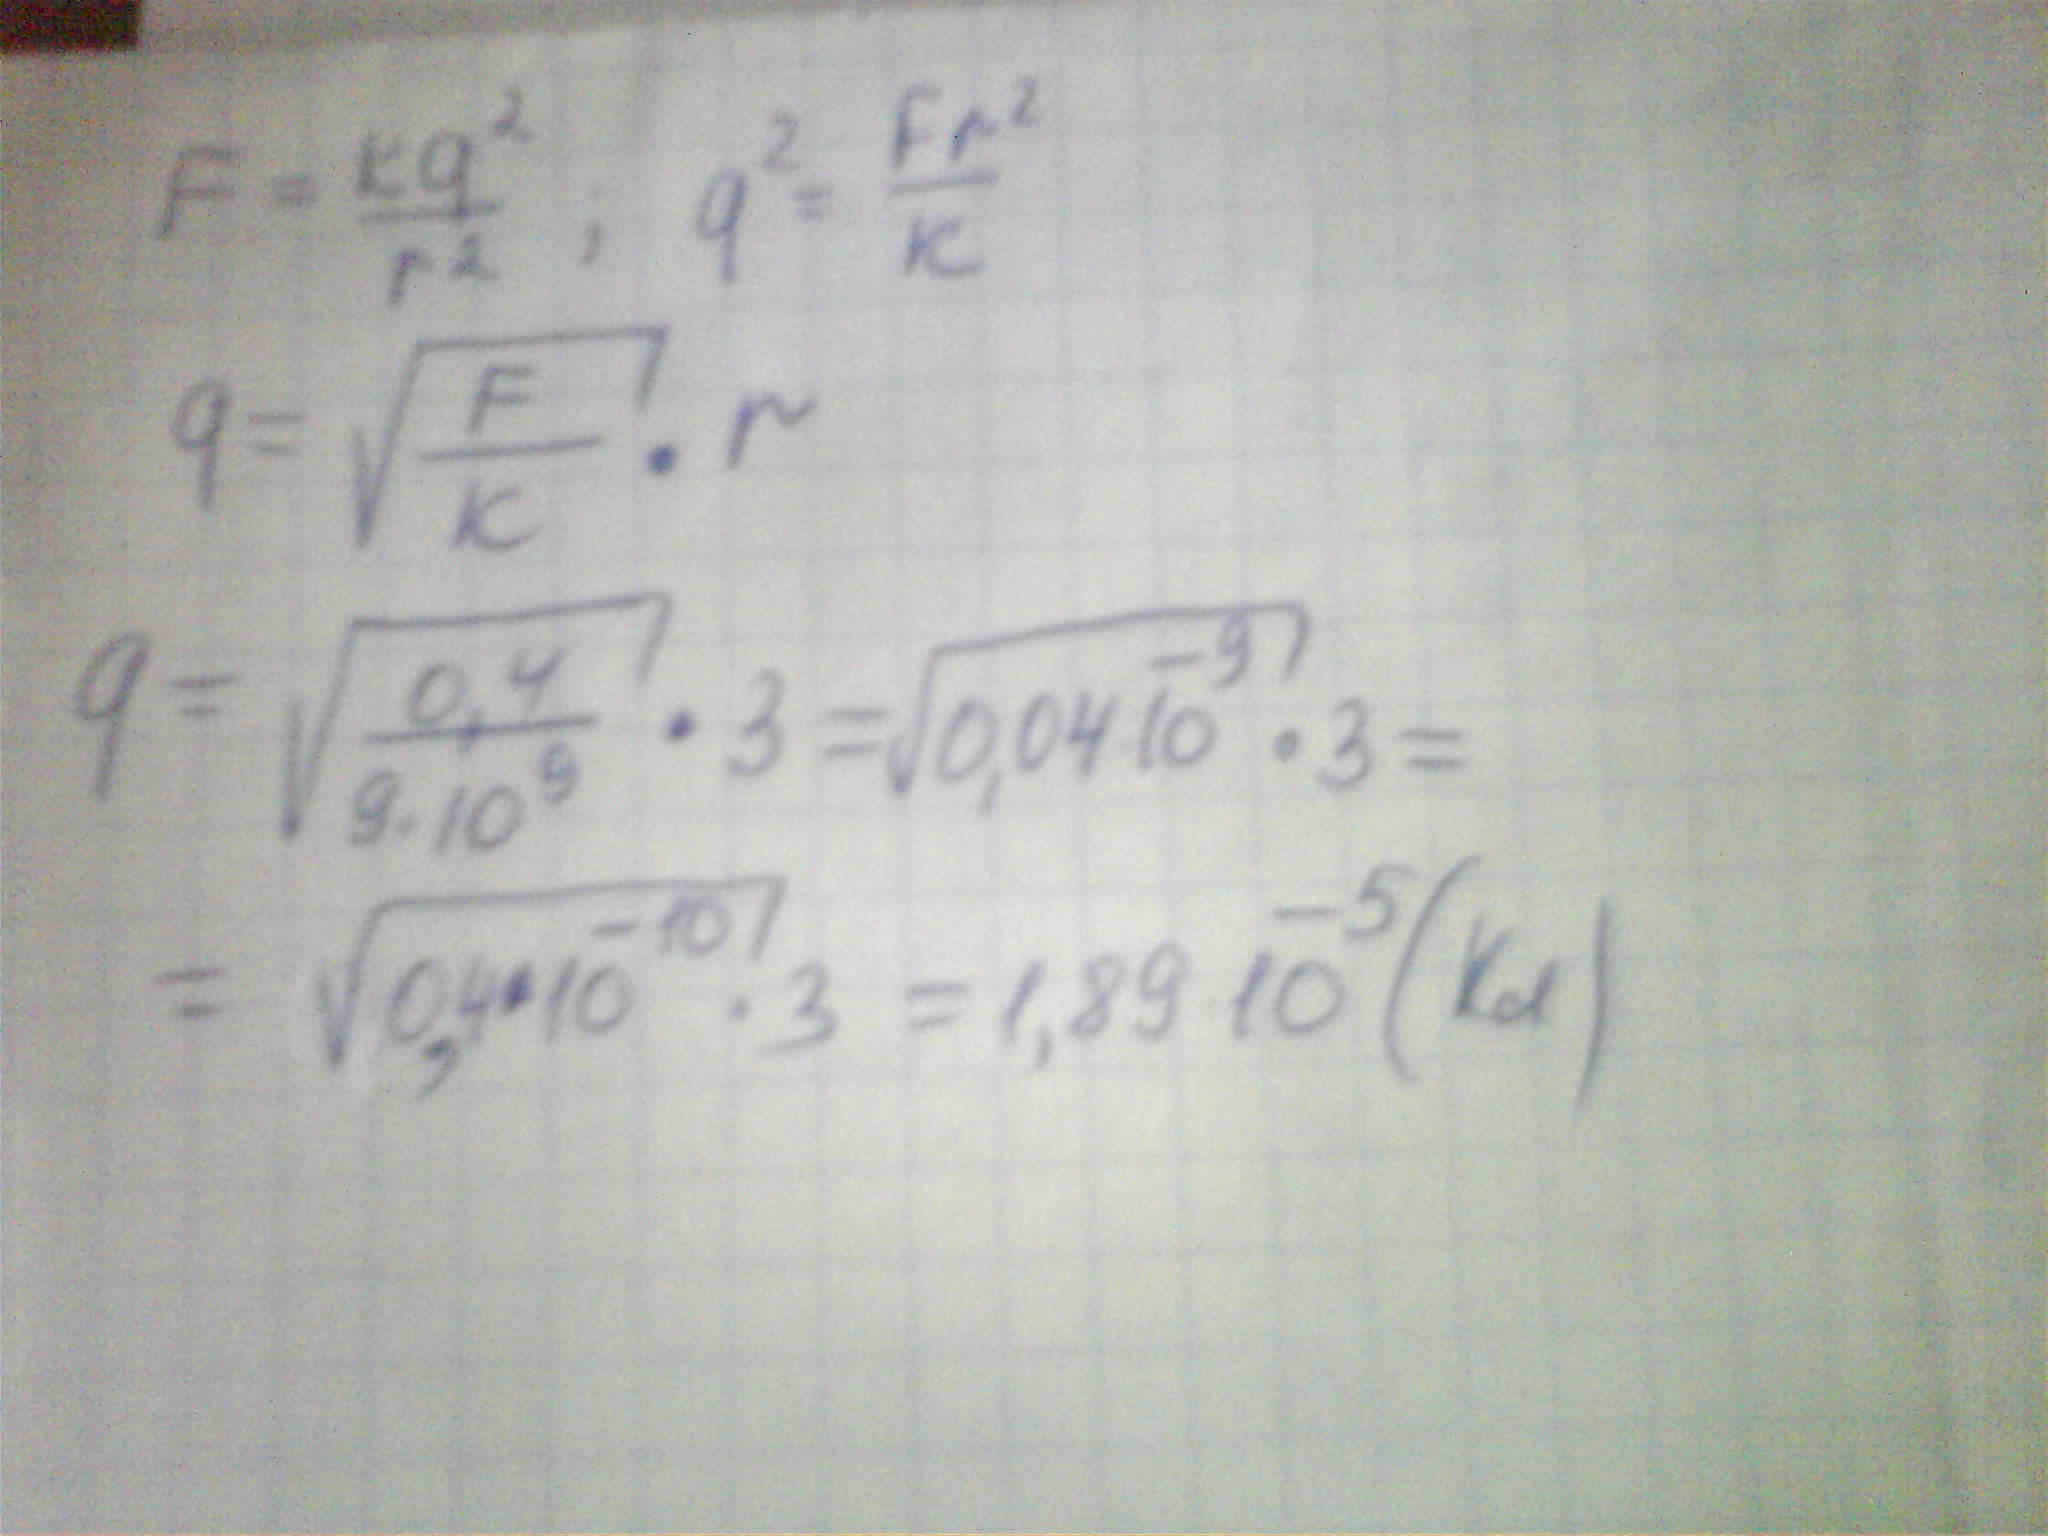 F = kq²/r² ; q² = Fr²/k
q = √(F/k) · r
q = √(0,4/9·10⁹) · 3 = √(0,04 10⁻⁹) · 3 =
= √(0,4·10⁻¹⁰) · 3 = 1,89 10⁻⁵ (Кл)